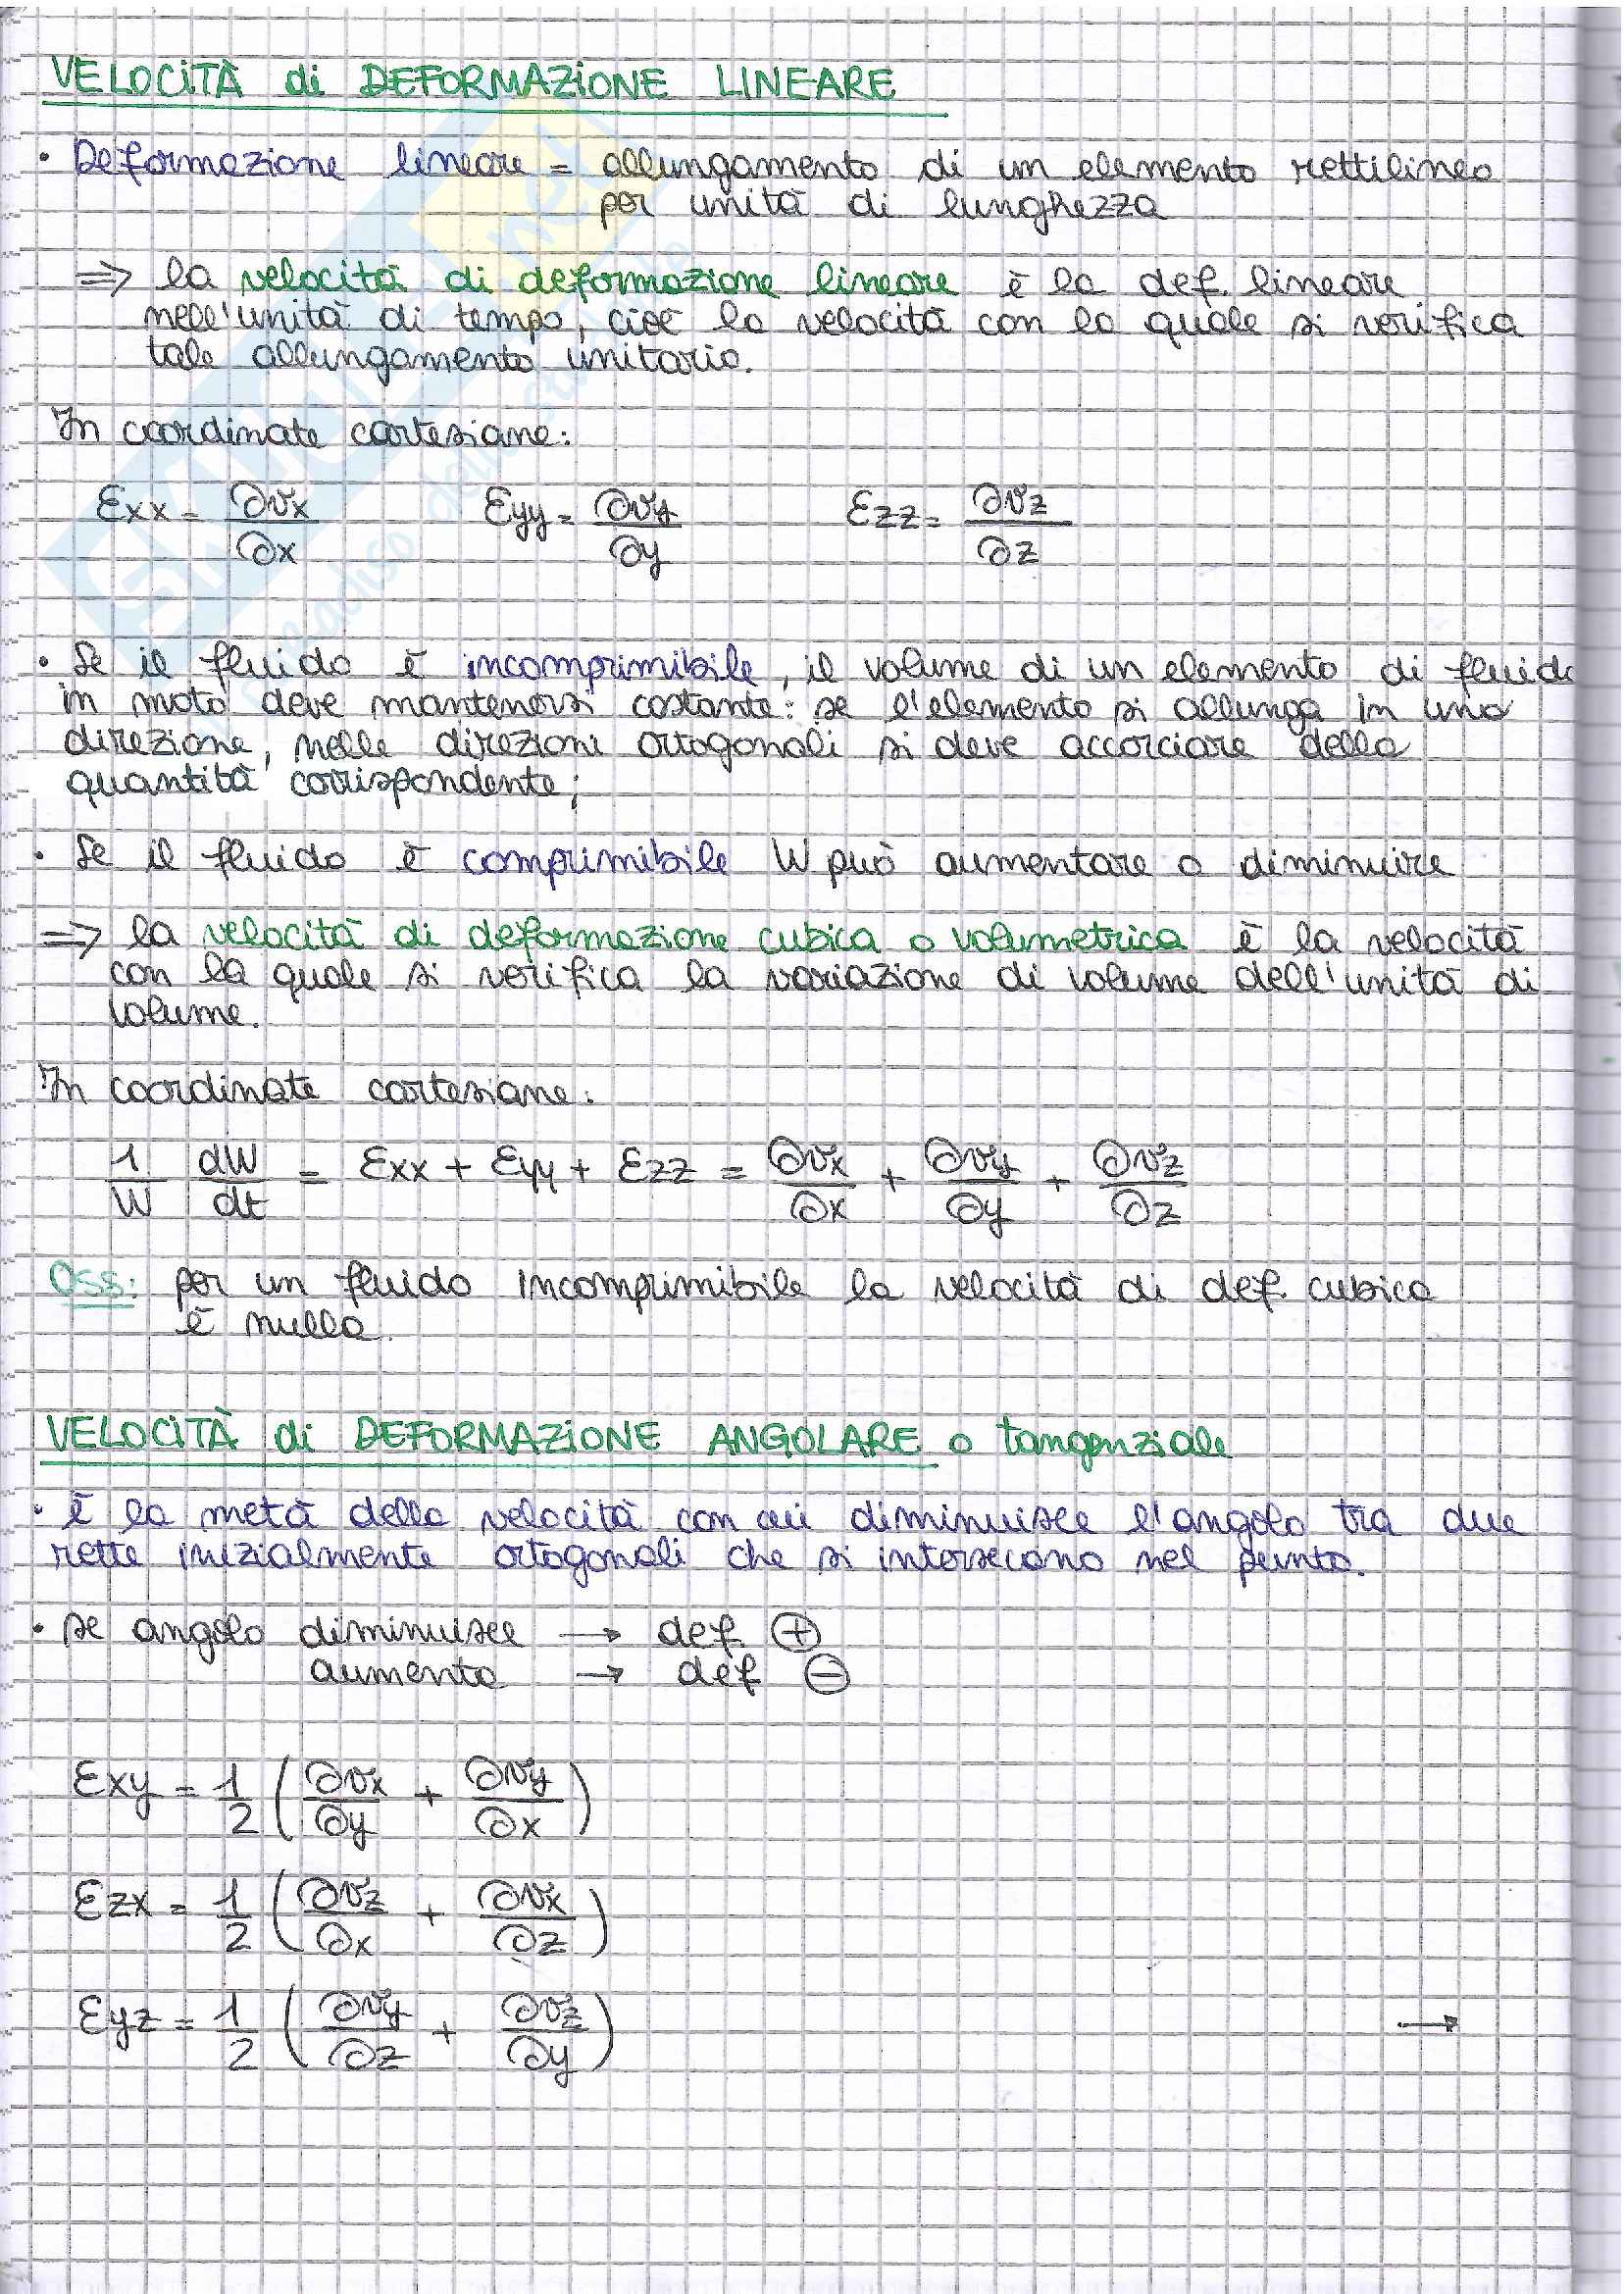 VELOCITÀ di DEFORMAZIONE LINEARE
• Deformazione lineare = allungamento di un elemento rettilineo
per unità di lunghezza
⇒ la velocità di deformazione lineare è la def. lineare
nell'unità di tempo, cioè la velocità con la quale si verifica
tale allungamento unitario.
In coordinate cartesiane:
Exx = ∂vx/∂x Eyy = ∂vy/∂y Ezz = ∂vz/∂z
• Se il fluido è incomprimibile, il volume di un elemento di fluido
in moto deve mantenersi costante: se l'elemento si allunga in una
direzione, nelle direzioni ortogonali si deve accorciare della
quantità corrispondente;
• Se il fluido è comprimibile W può aumentare o diminuire
⇒ la velocità di deformazione cubica o volumetrica è la velocità
con la quale si verifica la variazione di volume dell'unità di
volume.
In coordinate cartesiane:
1/W dW/dt = Exx + Eyy + Ezz = ∂vx/∂x + ∂vy/∂y + ∂vz/∂z
Oss: per un fluido incomprimibile la velocità di def. cubica
è nulla.
VELOCITÀ di DEFORMAZIONE ANGOLARE o tangenziale
• è la metà della velocità con cui diminuisce l'angolo tra due
rette inizialmente ortogonali che si intersecano nel punto.
• se angolo diminuisce → def. ⊕
aumenta → def ⊖
Exy = 1/2 (∂vx/∂y + ∂vy/∂x)
Ezx = 1/2 (∂vz/∂x + ∂vx/∂z)
Eyz = 1/2 (∂vy/∂z + ∂vz/∂y)
→